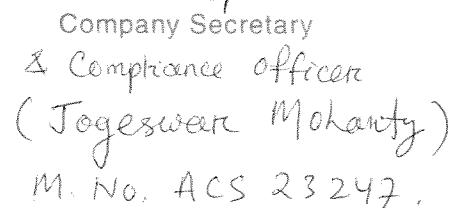 Company Secretary
& Compliance officer
(Jogeswar Mohanty)
M. No. ACS 23247.